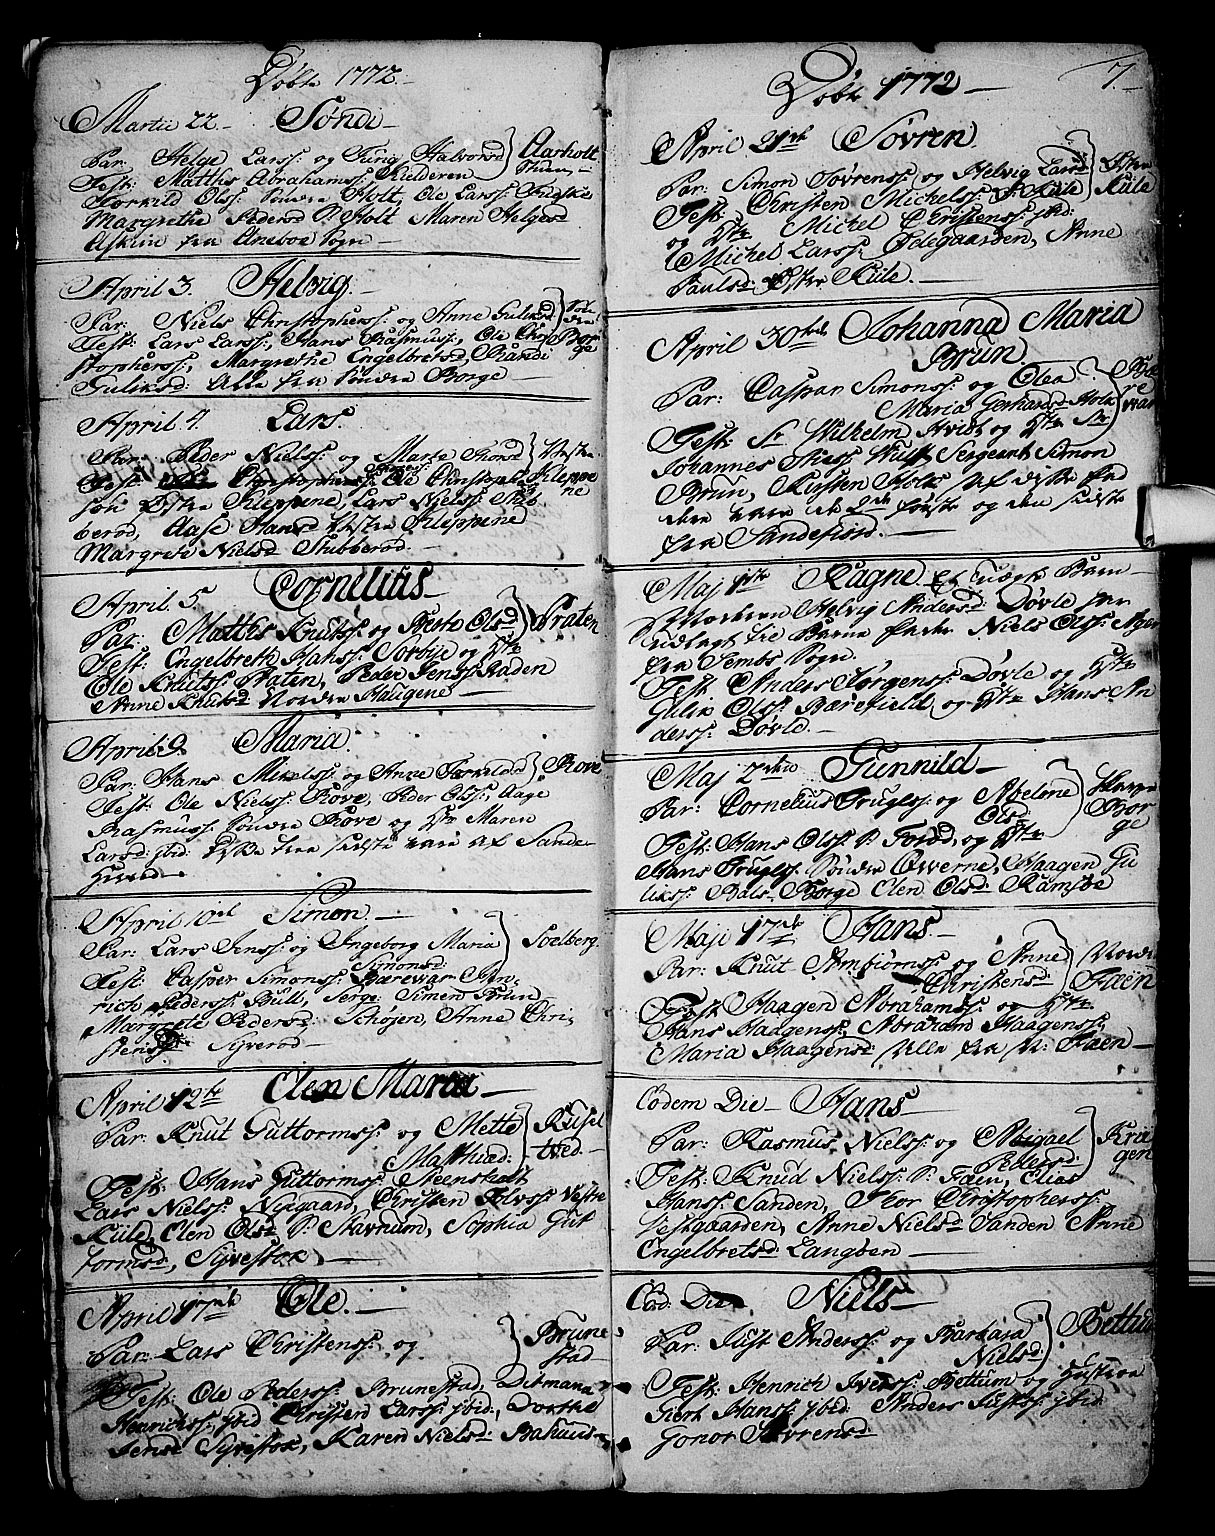 Döbte 1772.
Martii 22. Søndi
Par. Helge Larss: og Turig Halvorsd Aarholt
Test: Matths Abrahamss: Kielderen
Torkild Olss: Søndre Holt, Ole Larss:
Margrethe Pedersd P. Holt Maren Helgesd
Askim fra Aneboe Sogn
April 3. Helvig
Par. Niels Christopherss: og Anne Guliksd Søndre Borge
Test: Lars Larss:, Hans Rasmuss:, Ole Chri-
stopherss:, Margrethe Engelbretsd, Randi
Guliksd: Alle fra Søndre Borge
April 4. Lars.
Par: Peder Nielss: og Marte Vestre Kleppene
Test: Ole Christoph
Østre Kleppene, Lars Nielss: Stub-
berød, Aase Hansd Vestre Kleppene
Margrete Nielsd Stubberød.
April. 5. Cornelius
Par: Mathis Knutss: og Berte Olsd Braten
Test: Engelbreth Hanss: Sørbye og Hstr
Ole Knutss Braten, Peder Jenss: Raden
Anne Knutsd Nordre Haugene
April. 9. Maria
Par: Hans Mikelss: og Anne Torkildsd Rove
Test: Ole Nielss: Rove, Peder Olss:, Aage
Rasmuss: Søndre Rove og Hstr Maren
Larsd: ibid: fra sidste var af Sande-
Herred
April 10de Simon
Par: Lars Jenss: og Ingeborg Maria Simonsd: Soelberg.
Test: Casper Simonss: Barevar Hen-
rich Pederss: Bull, Serge: Simen Brun
Margrete Pedersd: Schøjen, Anne Chri-
stensd Syverød
April 12te Elen Maria
Par: Knut Guttormss: og Mette Mathiæd: Kuseltved
Test: Hans Guttormss: Steensholt
Lars Nielss: Nygaard, Christen Tolvss: Vestre
Kule, Elen Olsd P. Stavnum, Sophia Gut-
tormsd, Syvestok.
April 17de Ole.
Par: Lars Christenss: og Brunestad
Test: Ole Pederss: Brunestad, Ditmana
Henrichss: ibid Christen Larss: ibid:, Dorthe
Jensd Syvestok, Karen Nielsd:
Döbte 1772 7.
April 21de Søvren
Par: Simon Søvrenss: og Helvig Larsd Østre Kule
Test: Christen Michelss: P. Kule
og Hstr Michel Christenss: ibid:
Michel Larss: Ødegaarden, Anne
Paulsd: Østre Kule.
April 30te Johanna Maria
Brun
Par: Caspar Simonss: og Olea
Maria Gerhardsd Holk
Test: Sr Wilhelm Hvidt og Hstr Sr
Johannes Sergeant Simon
Brun, Holks Af disse Fad-
dere vare de 2de første og den sidste
fra Sandefiord.
Maj 1ste Ragne. Et uægte Barn
Moderen Helvig Andersd: Døvle har
udlagt til Barne Fader Niels Olss:
fra Sembs Sogn.
Test: Anders Jørgenss: Døvle og Hstr
Gulix Olss: Barefield og Hstr Hans An-
derss: Døvle.
Maj 2den Gunnild
Par: Cornelius Truglss: og Abelone Olsd: Borge
Test: Hans Olss: P. Forød, og Hstr
Hans Truglss: Søndre Qwerne, Haagen Gu-
likss: Bals-Borge Elen Olsd: Ramsøe
Maji 17de Hans
Par: Knut Arnbiørnss: og Anne Christensd: Nordre Faen
Test: Haagen Abrahamss: og Hstr
Hans Haagenss:, Abraham Haagenss:,
Maria Haagensd: Alle fra N: Faen
Eodem Die Hans
Par: Rasmus Nielss: og Abigael Pedersd: Kragen
Test: Knud Nielss: P. Faen, Elias
Hanss: Sanden, Thor Christopherss:
Vestgaarden, Anne Nielsd Sanden Anne
Engelbretsd: Langøen
Eod: Die Niels
Par: Just Anderss: og Barbara Nielsd: Bettum
Test: Henrich Iverss: Bettum og Hstr
Giert Hanss: ibid: Anders Justss: ibid
Gonor Søvrensd